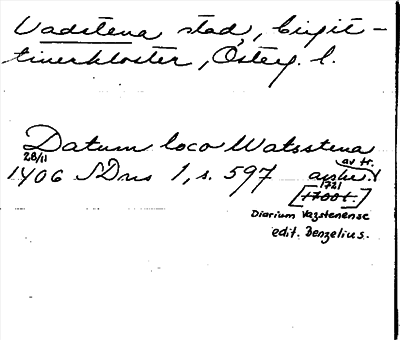 Vadstena stad, birgit-
tinerkloster, Österg. l.
Datum loco Watsstena
28/11
1406 SDns 1, s. 597
av tr.
avskr.
1721
[1700 t.]
Diarium Vazstenense
edit. Benzelius.